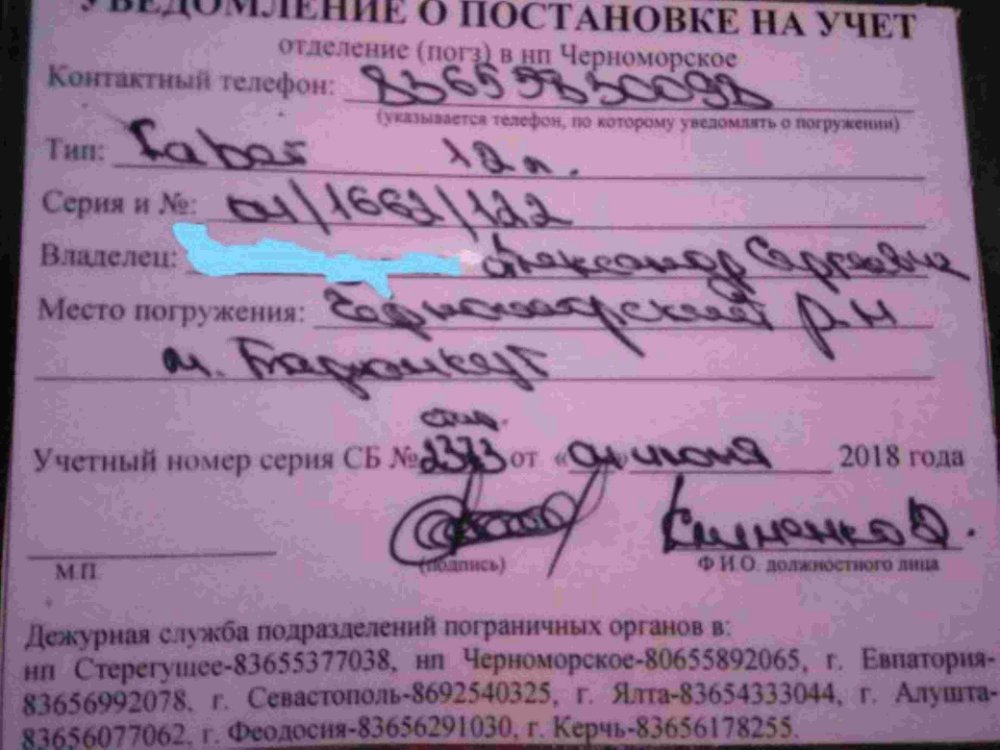 УВЕДОМЛЕНИЕ О ПОСТАНОВКЕ НА УЧЕТ
отделение (погз) в нп Черноморское
Контактный телефон:
(указывается телефон, по которому уведомлять о погружении)
Тип: 12л.
Серия и №: 04/1662/122
Владелец: Александр Сергеевич
Место погружения: Черноморский р-н
м. Тарханкут
Учетный номер серия СБ № 2373 от « » июня 2018 года
(подпись)
М.П. Ф.И.О. должностного лица
Дежурная служба подразделений пограничных органов в:
нп Стерегущее-83655377038, нп Черноморское-80655892065, г. Евпатория-
83656992078, г. Севастополь-8692540325, г. Ялта-83654333044, г. Алушта-
83656077062, г. Феодосия-83656291030, г. Керчь-83656178255.